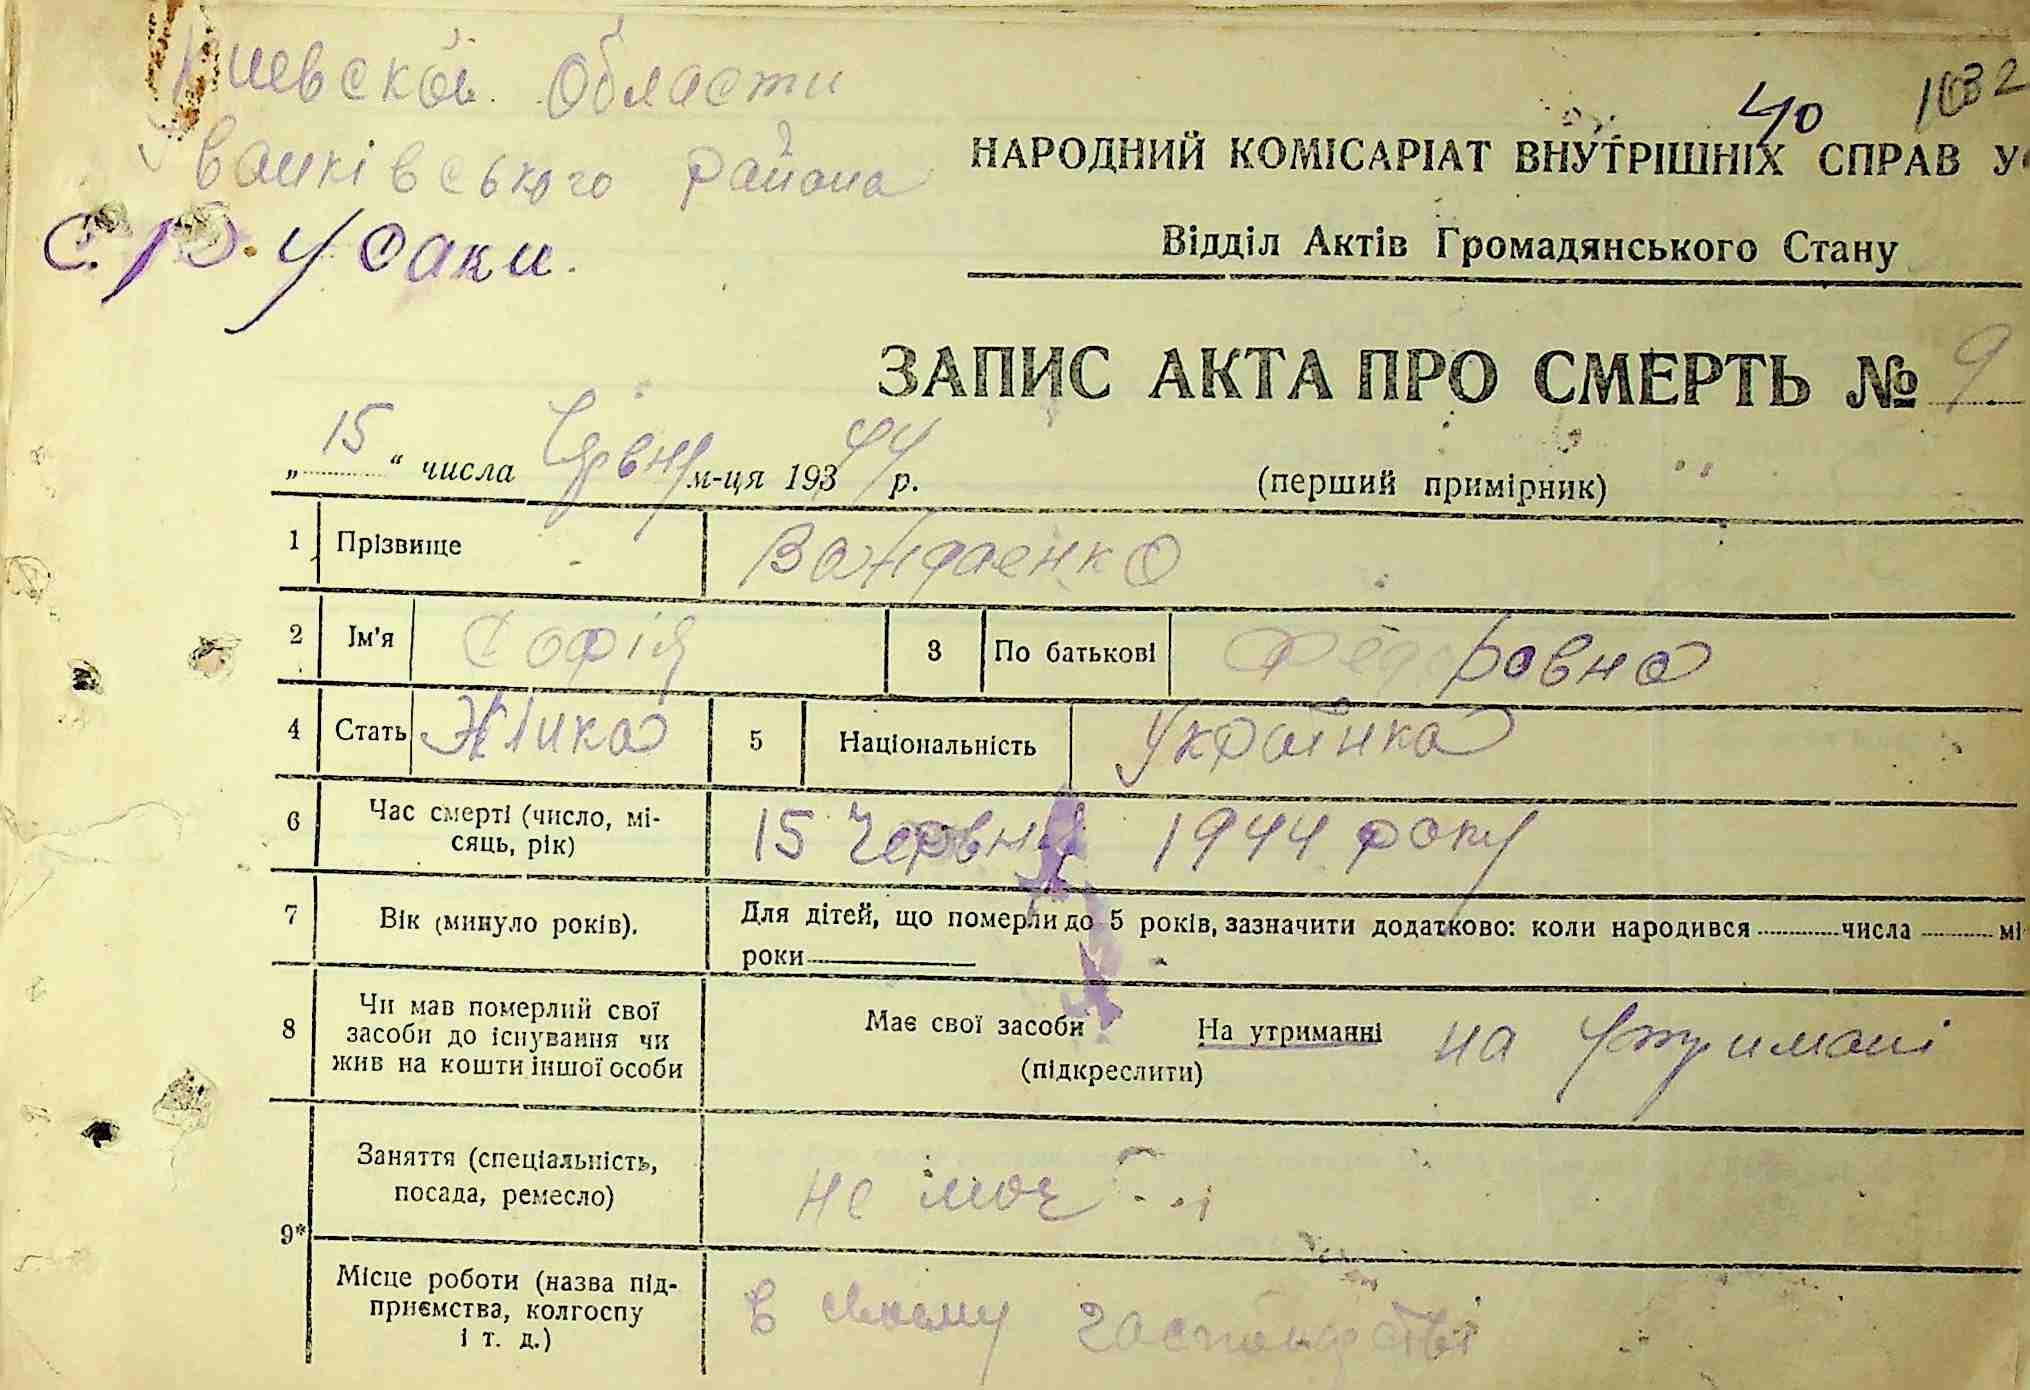 Киевской Области
Іванківського района
с. Рудаки.
40 1032
НАРОДНИЙ КОМІСАРІАТ ВНУТРІШНІХ СПРАВ
Відділ Актів Громадянського Стану
ЗАПИС АКТА ПРО СМЕРТЬ № 9
„15“ числа Червня м-ця 19344 р. (перший примірник)
1 Прізвище
2 Ім'я Софія 3 По батькові Федоровна
4 Стать Жінка 5 Національність Українка
6 Час смерті (число, мі-
сяць, рік) 15 Червня 1944 року
7 Вік (минуло років). Для дітей, що померли до 5 років, зазначити додатково: коли народився числа мі
роки
8 Чи мав померлий свої
засоби до існування чи
жив на кошти іншої особи
Має свої засоби На утриманні на утримані
(підкреслити)
9* Заняття (спеціальність,
посада, ремесло) не
Місце роботи (назва під-
приємства, колгоспу
і т. д.) в своєму господарстві